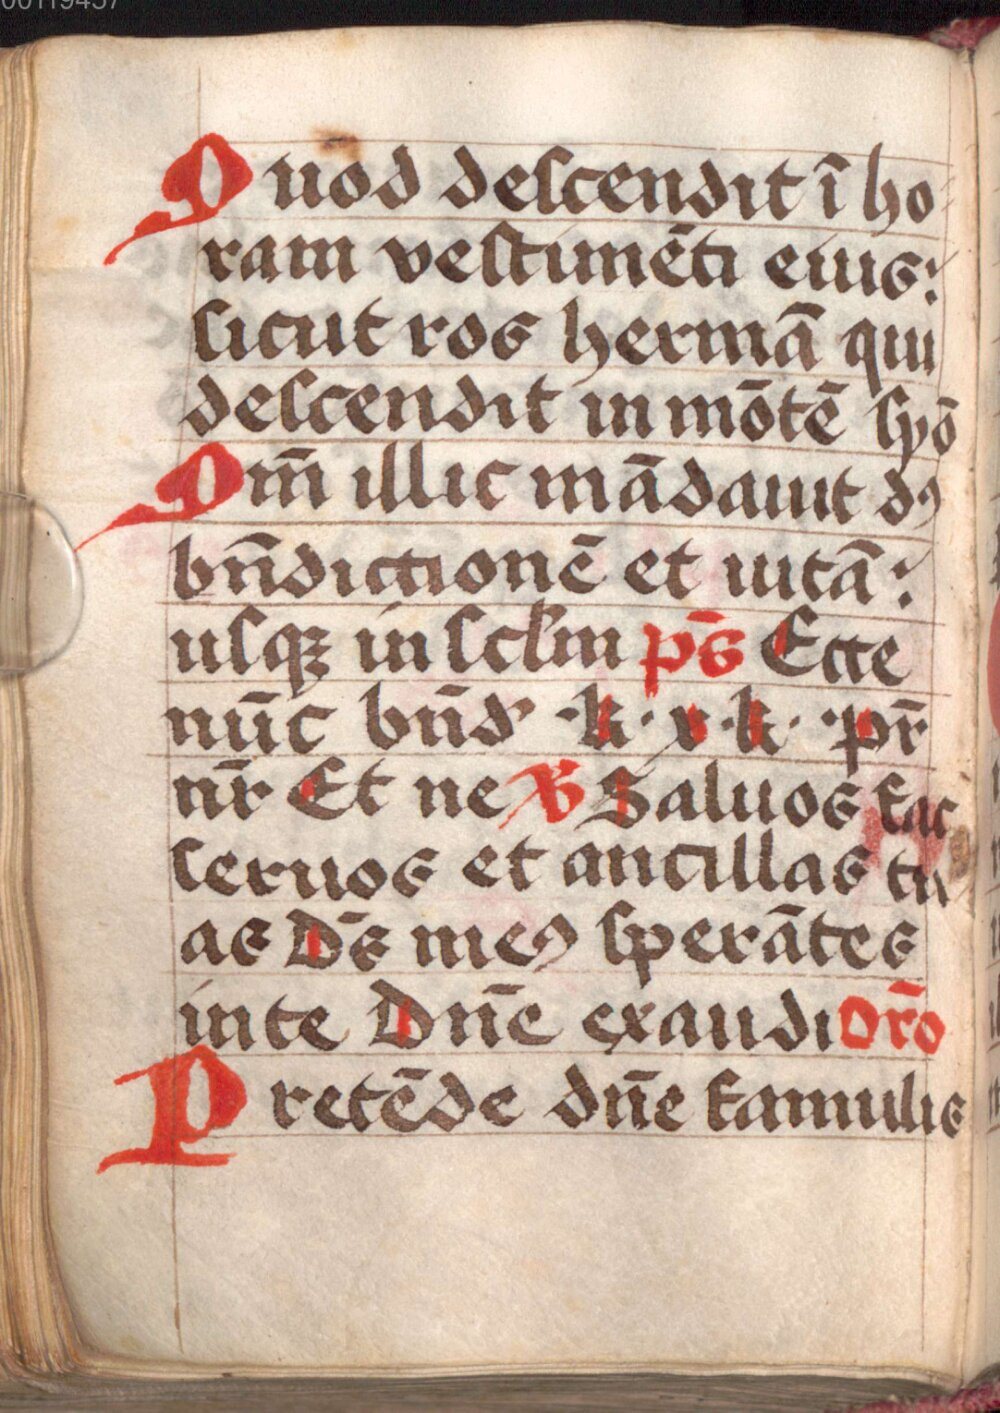 00119457
Quod descendit ī ho
ram vestimēti eius:
sicut ros hermā qui
descendit in mōtē syō
Qm̄ illic mādauit dꝰ
bn̄dictionē et uitā:
usqꝫ in sclm̄ ps̄ Ecce
nūc bn̄d k v k pr̄
nr̄ Et ne ꝟ Saluos fac
seruos et ancillas tu
as Ds̄ meꝰ sperātes
in te Dn̄e exaudi Or̄o
Pretēde dn̄e famulis